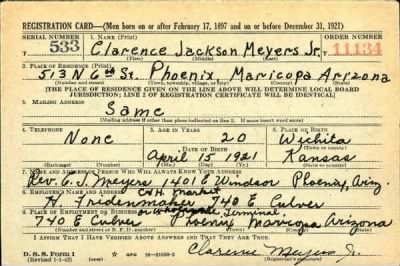 REGISTRATION CARD—(Men born on or after February 17, 1897 and on or before December 31, 1921)
SERIAL NUMBER 1. NAME (Print) ORDER NUMBER
533 Clarence Jackson Meyers Jr. 11134
(First) (Middle) (Last)
2. PLACE OF RESIDENCE (Print)
513 N 6th St. Phoenix Maricopa Arizona
(Number and street) (Town, township, village, or city) (County) (State)
[THE PLACE OF RESIDENCE GIVEN ON THE LINE ABOVE WILL DETERMINE LOCAL BOARD
JURISDICTION; LINE 2 OF REGISTRATION CERTIFICATE WILL BE IDENTICAL]
3. MAILING ADDRESS
Same
[Mailing address if other than place indicated on line 2. If same insert word same]
4. TELEPHONE 5. AGE IN YEARS 6. PLACE OF BIRTH
None 20 Wichita
DATE OF BIRTH (Town or county)
April 15 1921 Kansas
(Exchange) (Number) (Mo.) (Day) (Yr.) (State or country)
7. NAME AND ADDRESS OF PERSON WHO WILL ALWAYS KNOW YOUR ADDRESS
Rev. C. J. Meyers 1401 E Windsor Phoenix, Ariz.
8. EMPLOYER'S NAME AND ADDRESS
Market
H. Fridenmaker 740 E Culver
9. PLACE OF EMPLOYMENT OR BUSINESS Terminal
740 E Culver Phoenix Maricopa Arizona
(Number and street or R. F. D. number) (Town) (County) (State)
I AFFIRM THAT I HAVE VERIFIED ABOVE ANSWERS AND THAT THEY ARE TRUE.
D. S. S. Form 1
(Revised 1-1-42) (over) GPO 16—21630-2
Clarence Meyers Jr.